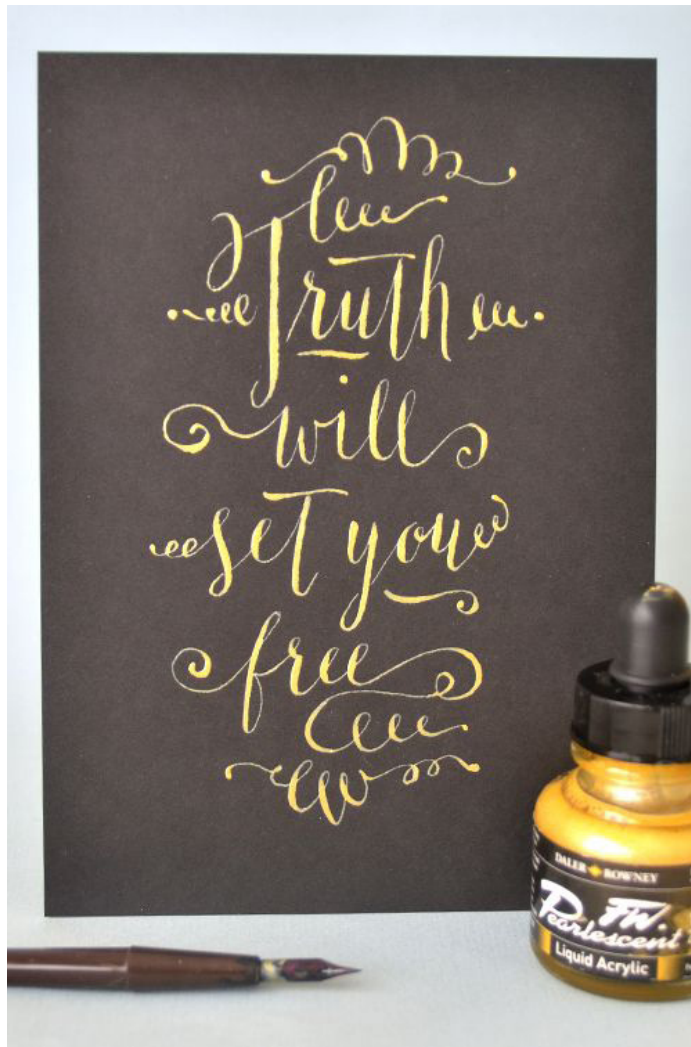 Truth
will
set you
free
DALER ROWNEY
FW.
Pearlescent
Liquid Acrylic